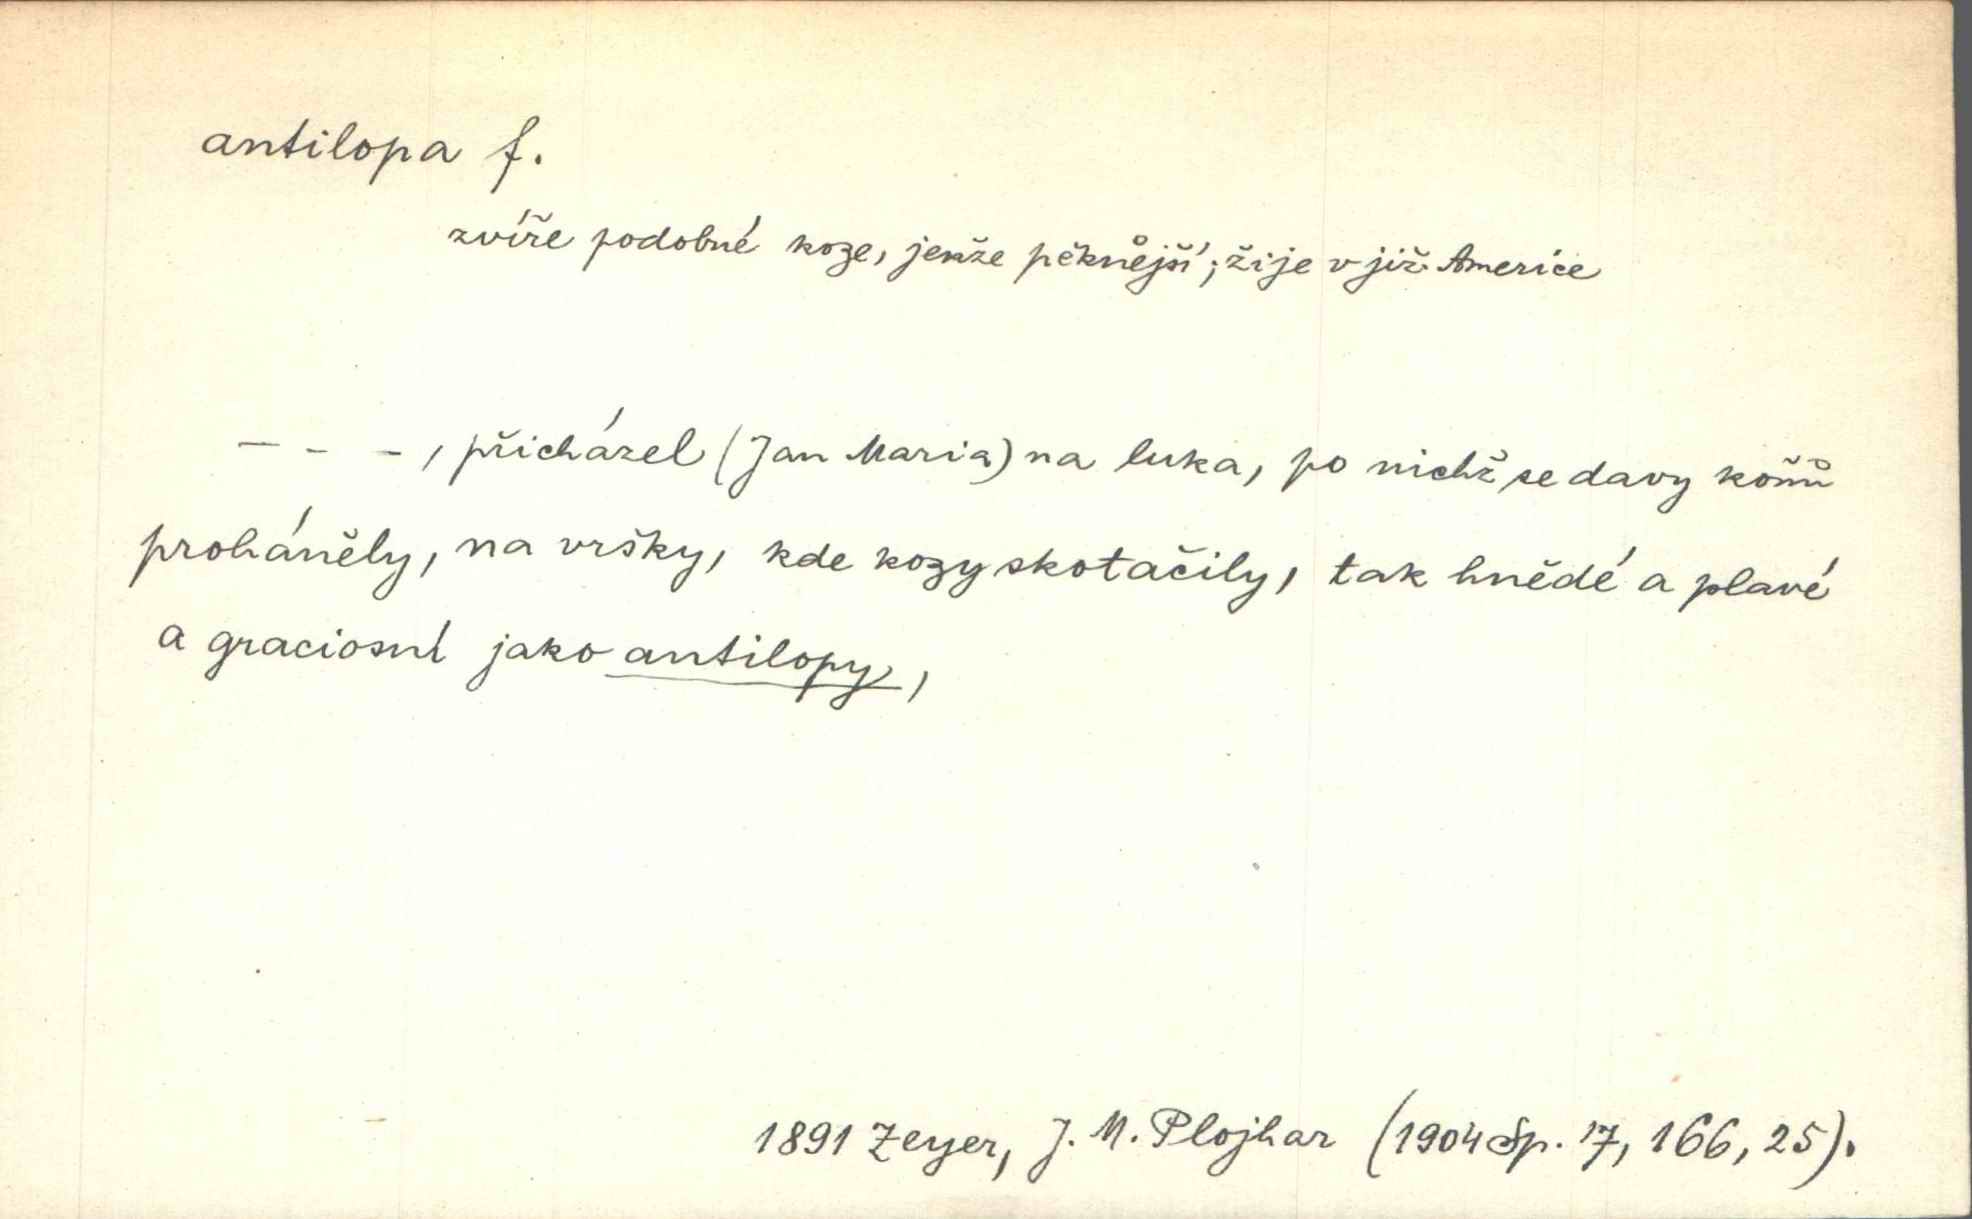 antilopa f.
zvíře podobné koze, jenže pěknější; žije v již. Americe
- - -, přicházel (Jan Maria) na luka, po nichž se davy koňů
proháněly, na vršky, kde kozy skotačily, tak hnědé a plavé
a graciosní jako antilopy,
1891 Zeyer, J. M. Plojhar (1904 Sp. 17, 166, 25).